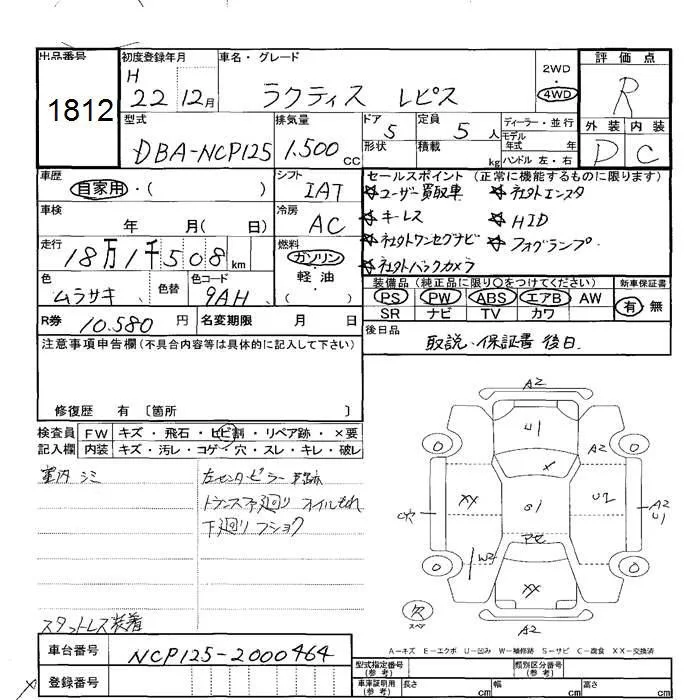 出品番号
1812
初度登録年月
H
22 12月
車名・グレード
ラクティス レピス
2WD
4WD
評価点
R
外装 内装
D C
型式
DBA-NCP125
排気量
1.500 cc
ドア 5
定員 5 人
形状
積載 kg
ディーラー・並行
モデル
年式 年
ハンドル 左・右
車歴
自家用・( )
シフト
IAT
セールスポイント (正常に機能するものに限ります)
☆ユーザー買取車
☆社外エンスタ
☆キーレス
☆HID
☆社外ワンセグナビ
☆フォグランプ
☆社外バックカメラ
車検
年 月( 日)
冷房
AC
走行
18万1千508 km
燃料
ガソリン
軽油
( )
色
ムラサキ
色替
色コード
9AH
装備品 (純正品に限り○をつけてください)
新車保証書
PS PW ABS エアB AW
SR ナビ TV カワ
有 無
R券 10.580 円
名変期限 月 日
後日品
取説・保証書 後日
注意事項申告欄(不具合内容等は具体的に記入して下さい)
修復歴 有 〔箇所 〕
検査員
記入欄
FW キズ・飛石・ヒビ割・リペア跡・×要
内装 キズ・汚レ・コゲ・穴・スレ・キレ・破レ
室内 シミ
左センタピラー
トランス下廻り オイルもれ
下廻り フショク
スタットレス装着
A2
U1
A2
XX
S1
U2
A2
U1
W2
XX
A2
欠
スペア
A−キズ E−エクボ U−凹み W−補修跡 S−サビ C−腐食 XX−交換済
車台番号
NCP125-2000464
登録番号
型式指定番号
(参考)
類別区分番号
(参考)
車庫証明用
(参考)
長さ cm
幅 cm
高さ cm